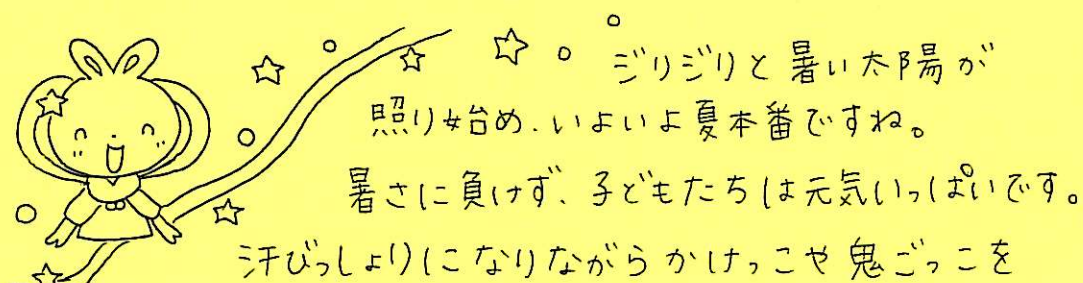 ジリジリと暑い太陽が
照り始め、いよいよ夏本番ですね。
暑さに負けず、子どもたちは元気いっぱいです。
汗びっしょりになりながらかけっこや鬼ごっこを